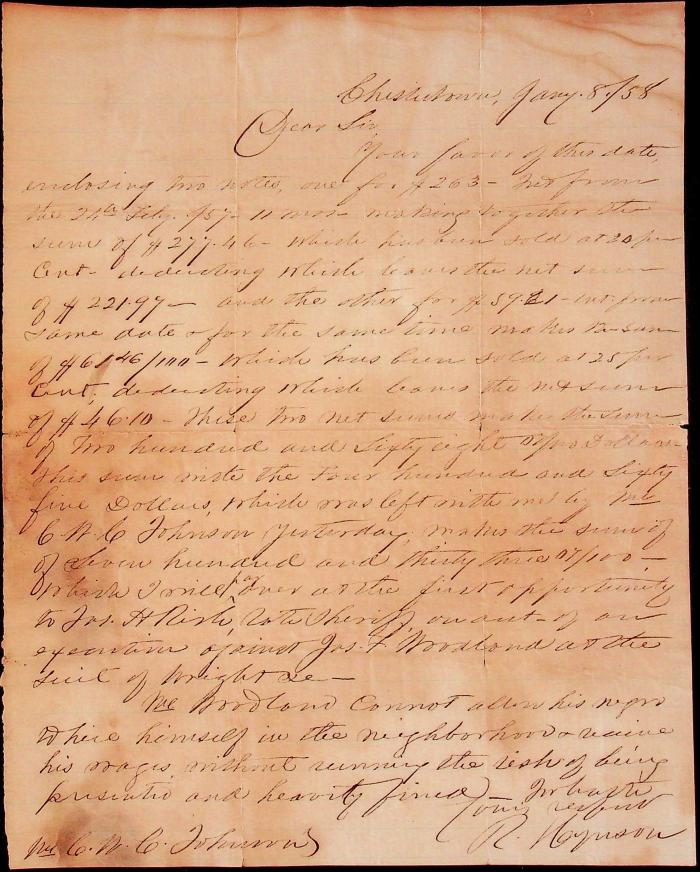 Chestertown, Jany. 8./58
Dear Sir,
Your favor of this date,
enclosing two notes, one for $263 - Int from
the 24th Feby. /57 - 11 mos - making together the
sum of $277.46 - which has been sold at 20 per
Cent - deducting which leaves the net sum
of $221.97 - and the other for $59.21 - int: from
same date & for the same time makes the sum
of $61 46/100 - which has been sold at 25 per
Cent, deducting which leaves the net sum
of $46.10 - These two net sums makes the sum
of Two hundred and Sixty eight 07/100 Dollars.
This sum with the Four hundred and Sixty
five Dollars, which was left with me by Mr
C. W. C. Johnson Yesterday, makes the sum of
of Seven hundred and thirty three 07/100 -
which I will pay over at the first opportunity
to Jas. H Rich, late Sheriff, on act. of an
execution against Jas. F Woodland at the
suit of Wright &c -
Mr Woodland Cannot allow his negro
to hire himself in the neighborhood & receive
his wages, without running the risk of being
presented and heavily fined, In haste
Yours respect
R. Hynson
Mr C. W. C. Johnson